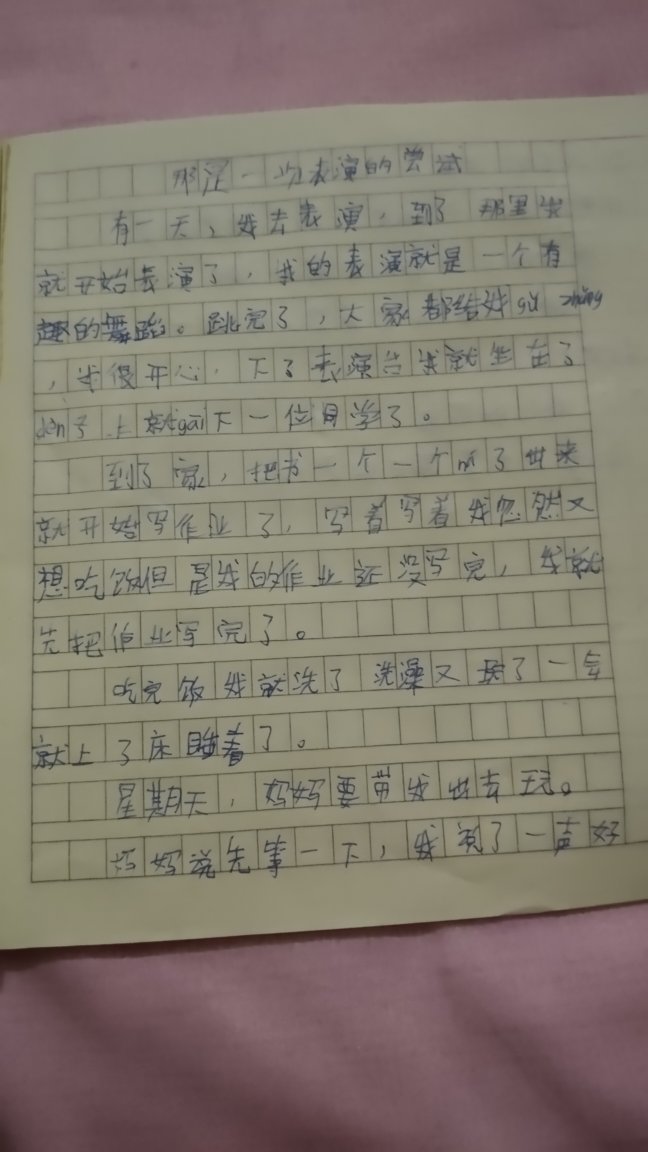 那是一次表演的尝试
有一天，我去表演，到了那里我
就开始表演了，我的表演就是一个有
趣的舞蹈。跳完了，大家都给我gǔ zhǎng
，我很开心，下了表演台我就坐在了
dèn子上就gāi下一位同学了。
到了家，把书一个一个ná了出来
就开始写作业了，写着写着我忽然又
想吃饭但是我的作业还没写完，我就
先把作业写完了。
吃完饭我就洗了洗澡又玩了一会
就上了床睡着了。
星期天，妈妈要带我出去玩。
妈妈说先等一下，我说了一声好